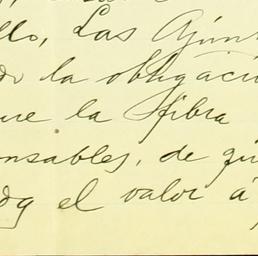 llo, Las Ayun
do la obligaci
ue la fibra
onsables, de qu
el valor á